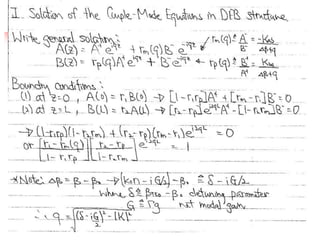 I. Solution of the Couple-Mode Equations in DFB structure
Write general solution:
A(z) = A⁺e^{iqz} + r_m(q)B⁻e^{-iqz}
B(z) = r_p(q)A⁺e^{iqz} + B⁻e^{-iqz}
Boundary conditions:
(1) at z=0, A(0) = r₁B(0) → [1-r₁r_p]A⁺ + [r_m-r₁]B⁻ = 0
(2) at z=L, B(L) = r₂A(L) → [r₂-r_p]e^{2iqL}A⁺ - [1-r₂r_m]B⁻ = 0
→ (1-r₁r_p)(1-r₂r_m) + (r₂-r_p)(r_m-r₁)e^{2iqL} = 0
or [r₁-r_m(q) / 1-r₁r_p][r₂-r_p / 1-r₂r_m] e^{2iqL} = 1
*Note: Δβ = β-β₀ → - β₀ ≙ δ-iG/2
where δ ≙ - β₀ detuning parameter
G ≙ Γg net modal gain
∴ q =